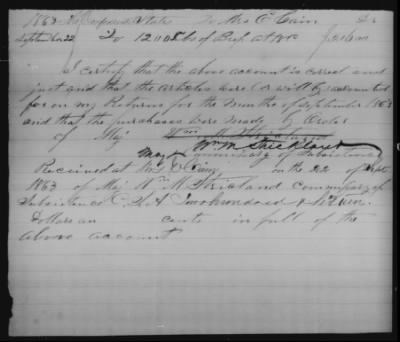 1863 The Confederate States To Mrs E Cain Dr
September 22 To 1200 lbs of Beef at 18c $216.00
I certify that the above account is correct and
just and that the articles were (or will be) accounted
for on my Returns for the Month of September 1863
and that the purchases were made by Order
of Maj Wm M Strickland
Wm M Strickland
Maj & Commissary of Subsistence
Received at Mrs E Cains on the 22 of Sept
1863 of Maj W M Strickland Commissary of
Subsistence C. S. A Two hundred & Sixteen
Dollars an cents in full of the
above account